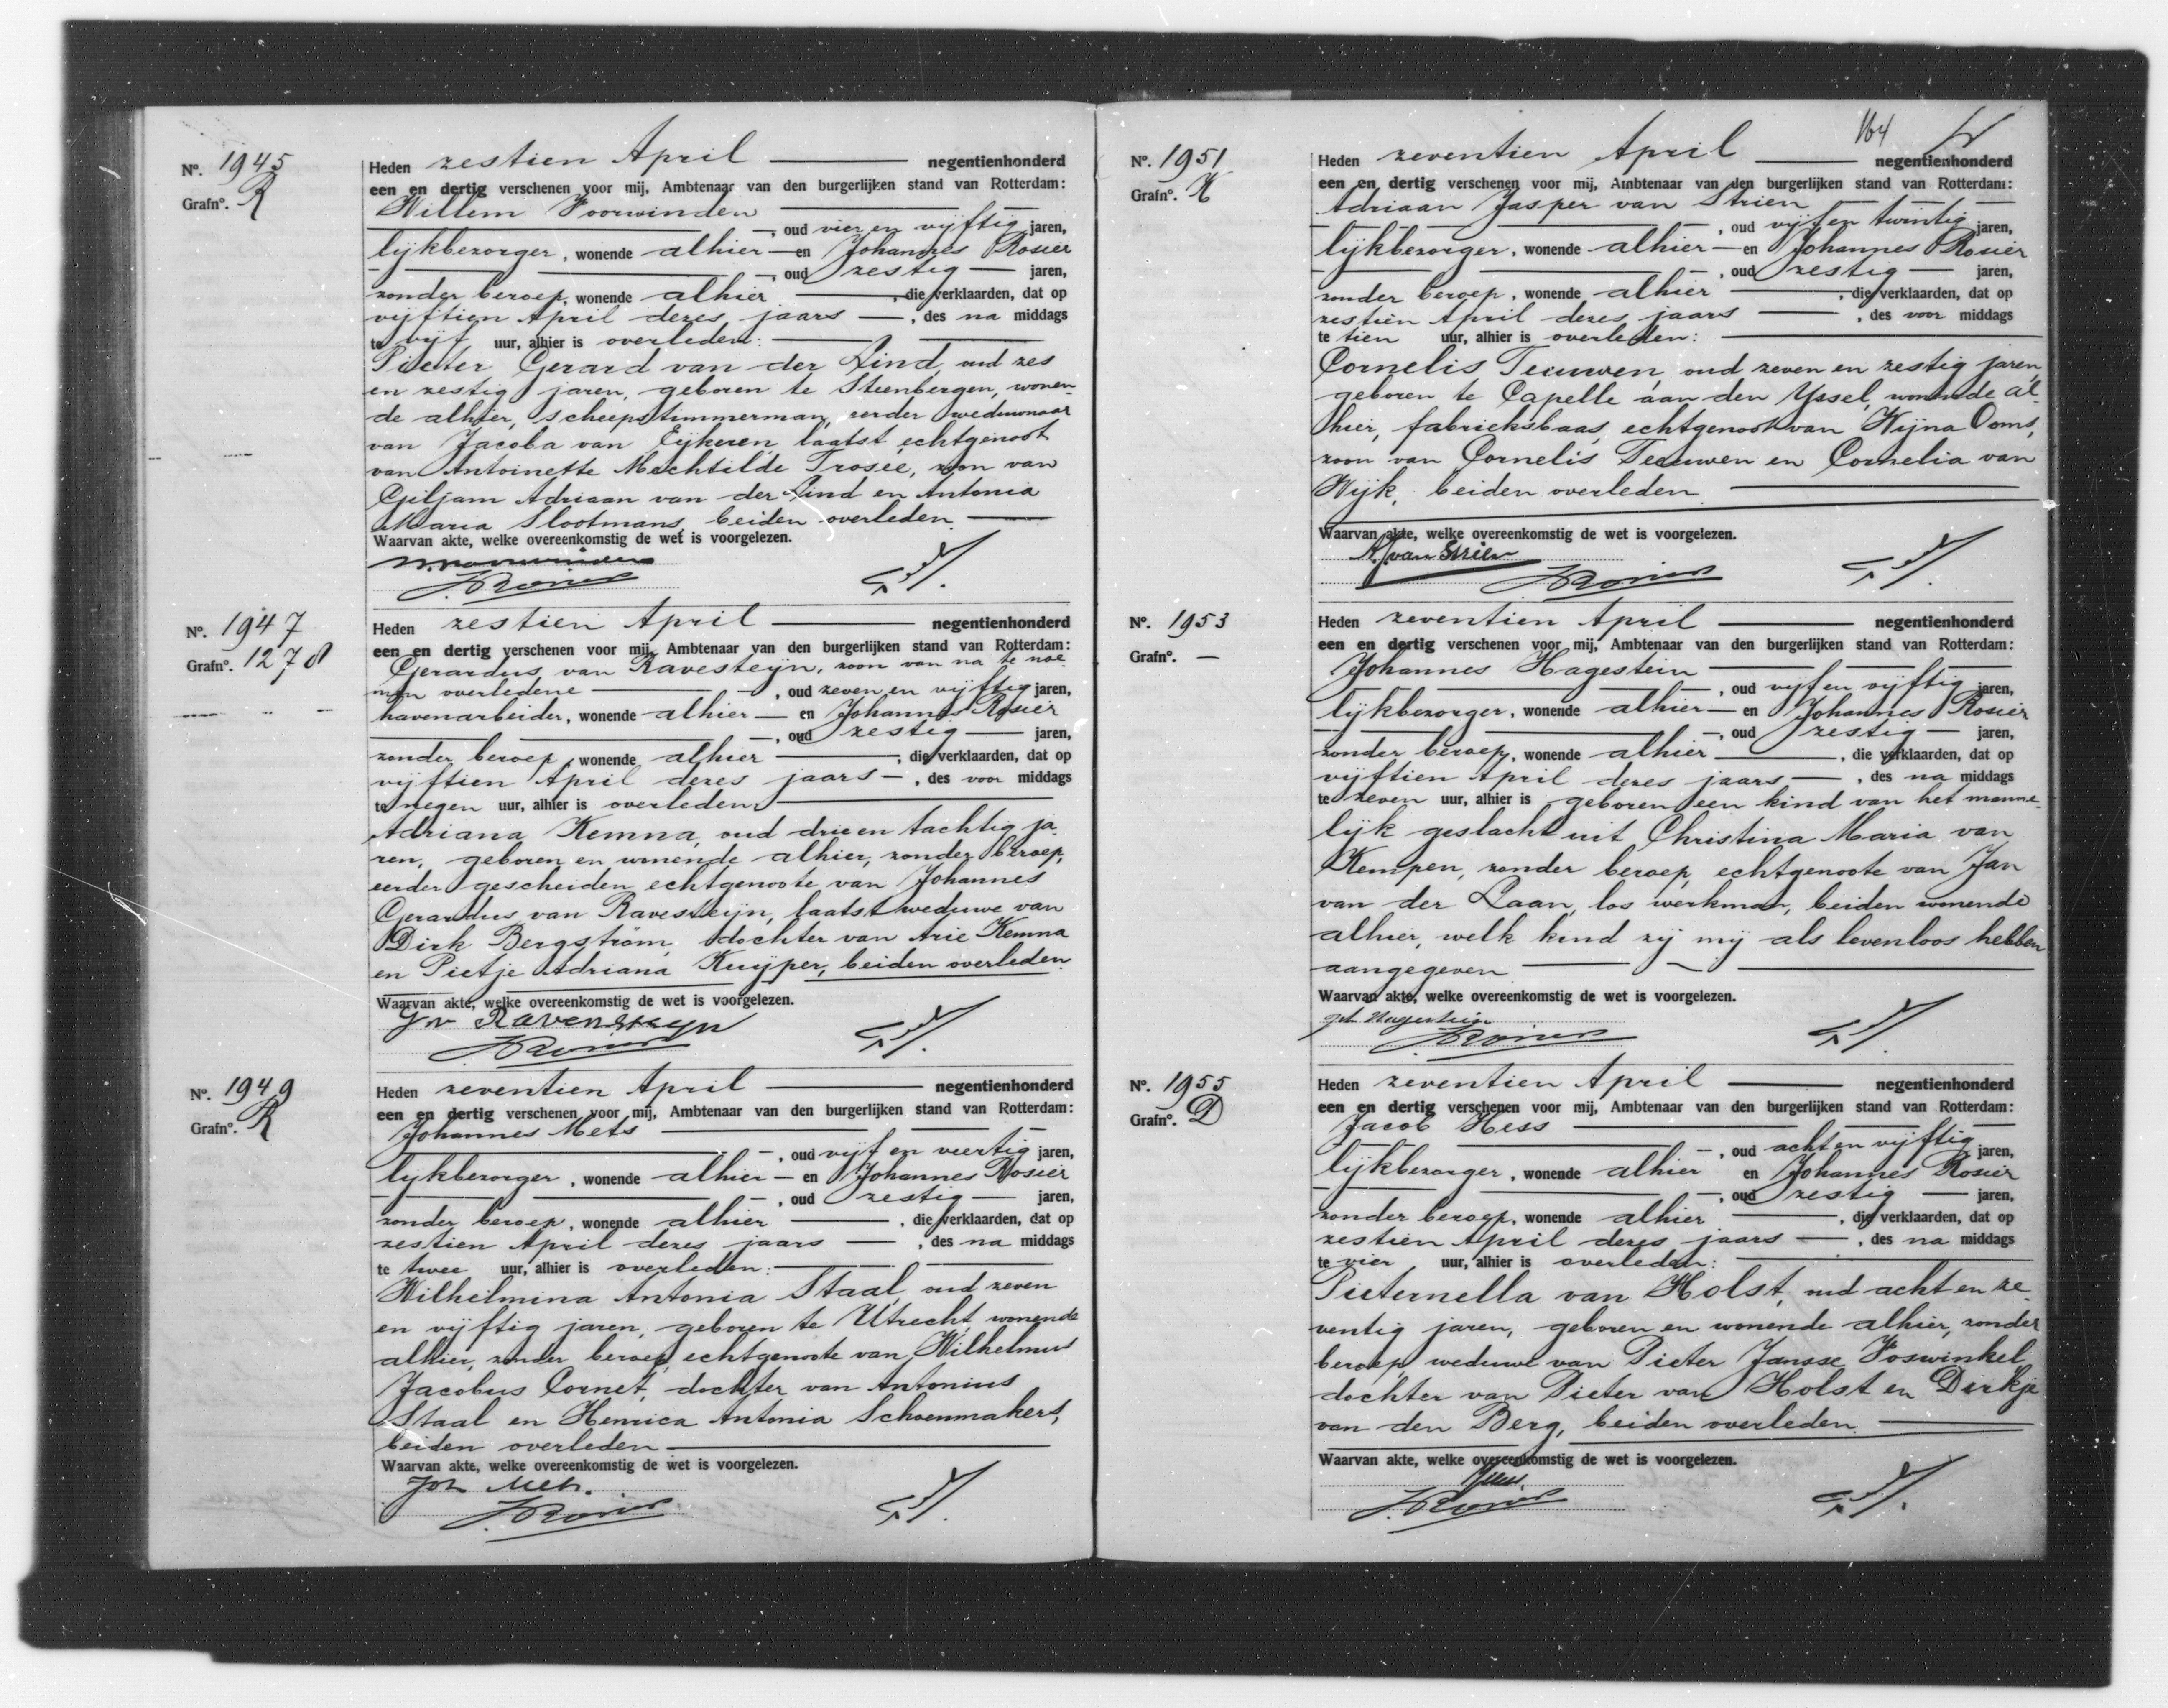 Nº. 1945
Grafnº. R
Heden zestien April negentienhonderd
een en dertig verschenen voor mij, Ambtenaar van den burgerlijken stand van Rotterdam:
Willem Voorwinden
, oud vier en vijftig jaren,
lijkbezorger, wonende alhier en Johannes Rosier
, oud zestig jaren,
zonder beroep, wonende alhier, die verklaarden, dat op
vijftien April dezes jaars, des na middags
te vijf uur, alhier is overleden:
Pieter Gerard van der Lind, oud zes
en zestig jaren, geboren te Steenbergen, wonen-
de alhier, scheepstimmerman, eerder weduwnaar
van Jacoba van Eijkeren, laatst echtgenoot
van Antoinette Mechtilde Trosée, zoon van
Giljam Adriaan van der Lind en Antonia
Maria Slootmans, beiden overleden.
Waarvan akte, welke overeenkomstig de wet is voorgelezen.
W. Voorwinden
J. Rosier
Nº. 1947
Grafnº. 1278
Heden zestien April negentienhonderd
een en dertig verschenen voor mij, Ambtenaar van den burgerlijken stand van Rotterdam:
Gerardus van Ravesteijn, zoon van na te noe-
men overledene, oud zeven en vijftig jaren,
havenarbeider, wonende alhier en Johannes Rosier
, oud zestig jaren,
zonder beroep, wonende alhier, die verklaarden, dat op
vijftien April dezes jaars, des voor middags
te negen uur, alhier is overleden
Adriana Kemna, oud drie en tachtig ja-
ren, geboren en wonende alhier, zonder beroep,
eerder gescheiden echtgenoote van Johannes
Gerardus van Ravesteijn, laatst weduwe van
Dirk Bergström, dochter van Arie Kemna
en Pietje Adriana Kuijper, beiden overleden.
Waarvan akte, welke overeenkomstig de wet is voorgelezen.
G v Ravensteyn
J. Rosier
Nº. 1949
Grafnº. R
Heden zeventien April negentienhonderd
een en dertig verschenen voor mij, Ambtenaar van den burgerlijken stand van Rotterdam:
Johannes Mets
, oud vijf en veertig jaren,
lijkbezorger, wonende alhier en Johannes Rosier
, oud zestig jaren,
zonder beroep, wonende alhier, die verklaarden, dat op
zestien April dezes jaars, des na middags
te twee uur, alhier is overleden:
Wilhelmina Antonia Staal, oud zeven
en vijftig jaren, geboren te Utrecht, wonende
alhier, zonder beroep, echtgenoote van Wilhelmus
Jacobus Cornet, dochter van Antonius
Staal en Henrica Antonia Schoenmakers,
beiden overleden
Waarvan akte, welke overeenkomstig de wet is voorgelezen.
Joh Mets.
J. Rosier
164
Nº. 1951
Grafnº. K
Heden zeventien April negentienhonderd
een en dertig verschenen voor mij, Ambtenaar van den burgerlijken stand van Rotterdam:
Adriaan Jasper van Strien
, oud vijf en twintig jaren,
lijkbezorger, wonende alhier en Johannes Rosier
, oud zestig jaren,
zonder beroep, wonende alhier, die verklaarden, dat op
zestien April dezes jaars, des voor middags
te tien uur, alhier is overleden:
Cornelis Teeuwen, oud zeven en zestig jaren,
geboren te Capelle aan den Yssel, wonende al-
hier, fabrieksbaas, echtgenoot van Wijna Ooms,
zoon van Cornelis Teeuwen en Cornelia van
Wijk, beiden overleden.
Waarvan akte, welke overeenkomstig de wet is voorgelezen.
A. J van Strien
J. Rosier
Nº. 1953
Grafnº. —
Heden zeventien April negentienhonderd
een en dertig verschenen voor mij, Ambtenaar van den burgerlijken stand van Rotterdam:
Johannes Hagestein
, oud vijf en vijftig jaren,
lijkbezorger, wonende alhier en Johannes Rosier
, oud zestig jaren,
zonder beroep, wonende alhier, die verklaarden, dat op
vijftien April dezes jaars, des na middags
te zeven uur, alhier is geboren een kind van het manne-
lijk geslacht uit Christina Maria van
Kempen, zonder beroep, echtgenoote van Jan
van der Laan, los werkman, beiden wonende
alhier, welk kind zij mij als levenloos hebben
aangegeven
Waarvan akte, welke overeenkomstig de wet is voorgelezen.
Hagestein
J. Rosier
Nº. 1955
Grafnº. D
Heden zeventien April negentienhonderd
een en dertig verschenen voor mij, Ambtenaar van den burgerlijken stand van Rotterdam:
Jacob Hess
, oud acht en vijftig jaren,
lijkbezorger, wonende alhier en Johannes Rosier
, oud zestig jaren,
zonder beroep, wonende alhier, die verklaarden, dat op
zestien April dezes jaars, des na middags
te vier uur, alhier is overleden:
Pieternella van Holst, oud acht en ze-
ventig jaren, geboren en wonende alhier, zonder
beroep, weduwe van Pieter Jansse Voswinkel,
dochter van Pieter van Holst en Dirkje
van den Berg, beiden overleden.
Waarvan akte, welke overeenkomstig de wet is voorgelezen.
JHess
J. Rosier